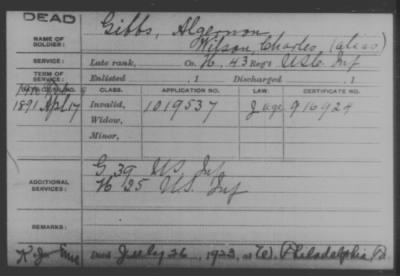 DEAD
Gibbs, Algernon
NAME OF SOLDIER:
Wilson, Charles, (alias)
SERVICE: Late rank, Co. H, 43 Reg't U.S.C. Inf
TERM OF SERVICE: Enlisted , 1 Discharged , 1
DATE OF FILING. CLASS. APPLICATION NO. LAW. CERTIFICATE NO.
1891 Apl 17 Invalid, 1019537 916924
Widow,
Minor,
ADDITIONAL SERVICES:
G 39 U.S. Inf
H 25 U.S. Inf
REMARKS:
Died July 26, 1923, at W. Philadelphia Pa